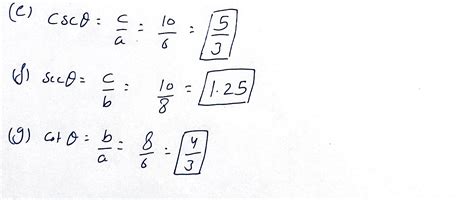 (e) cscθ = c/a = 10/6 = 5/3
(f) secθ = c/b = 10/8 = 1.25
(g) cotθ = b/a = 8/6 = 4/3